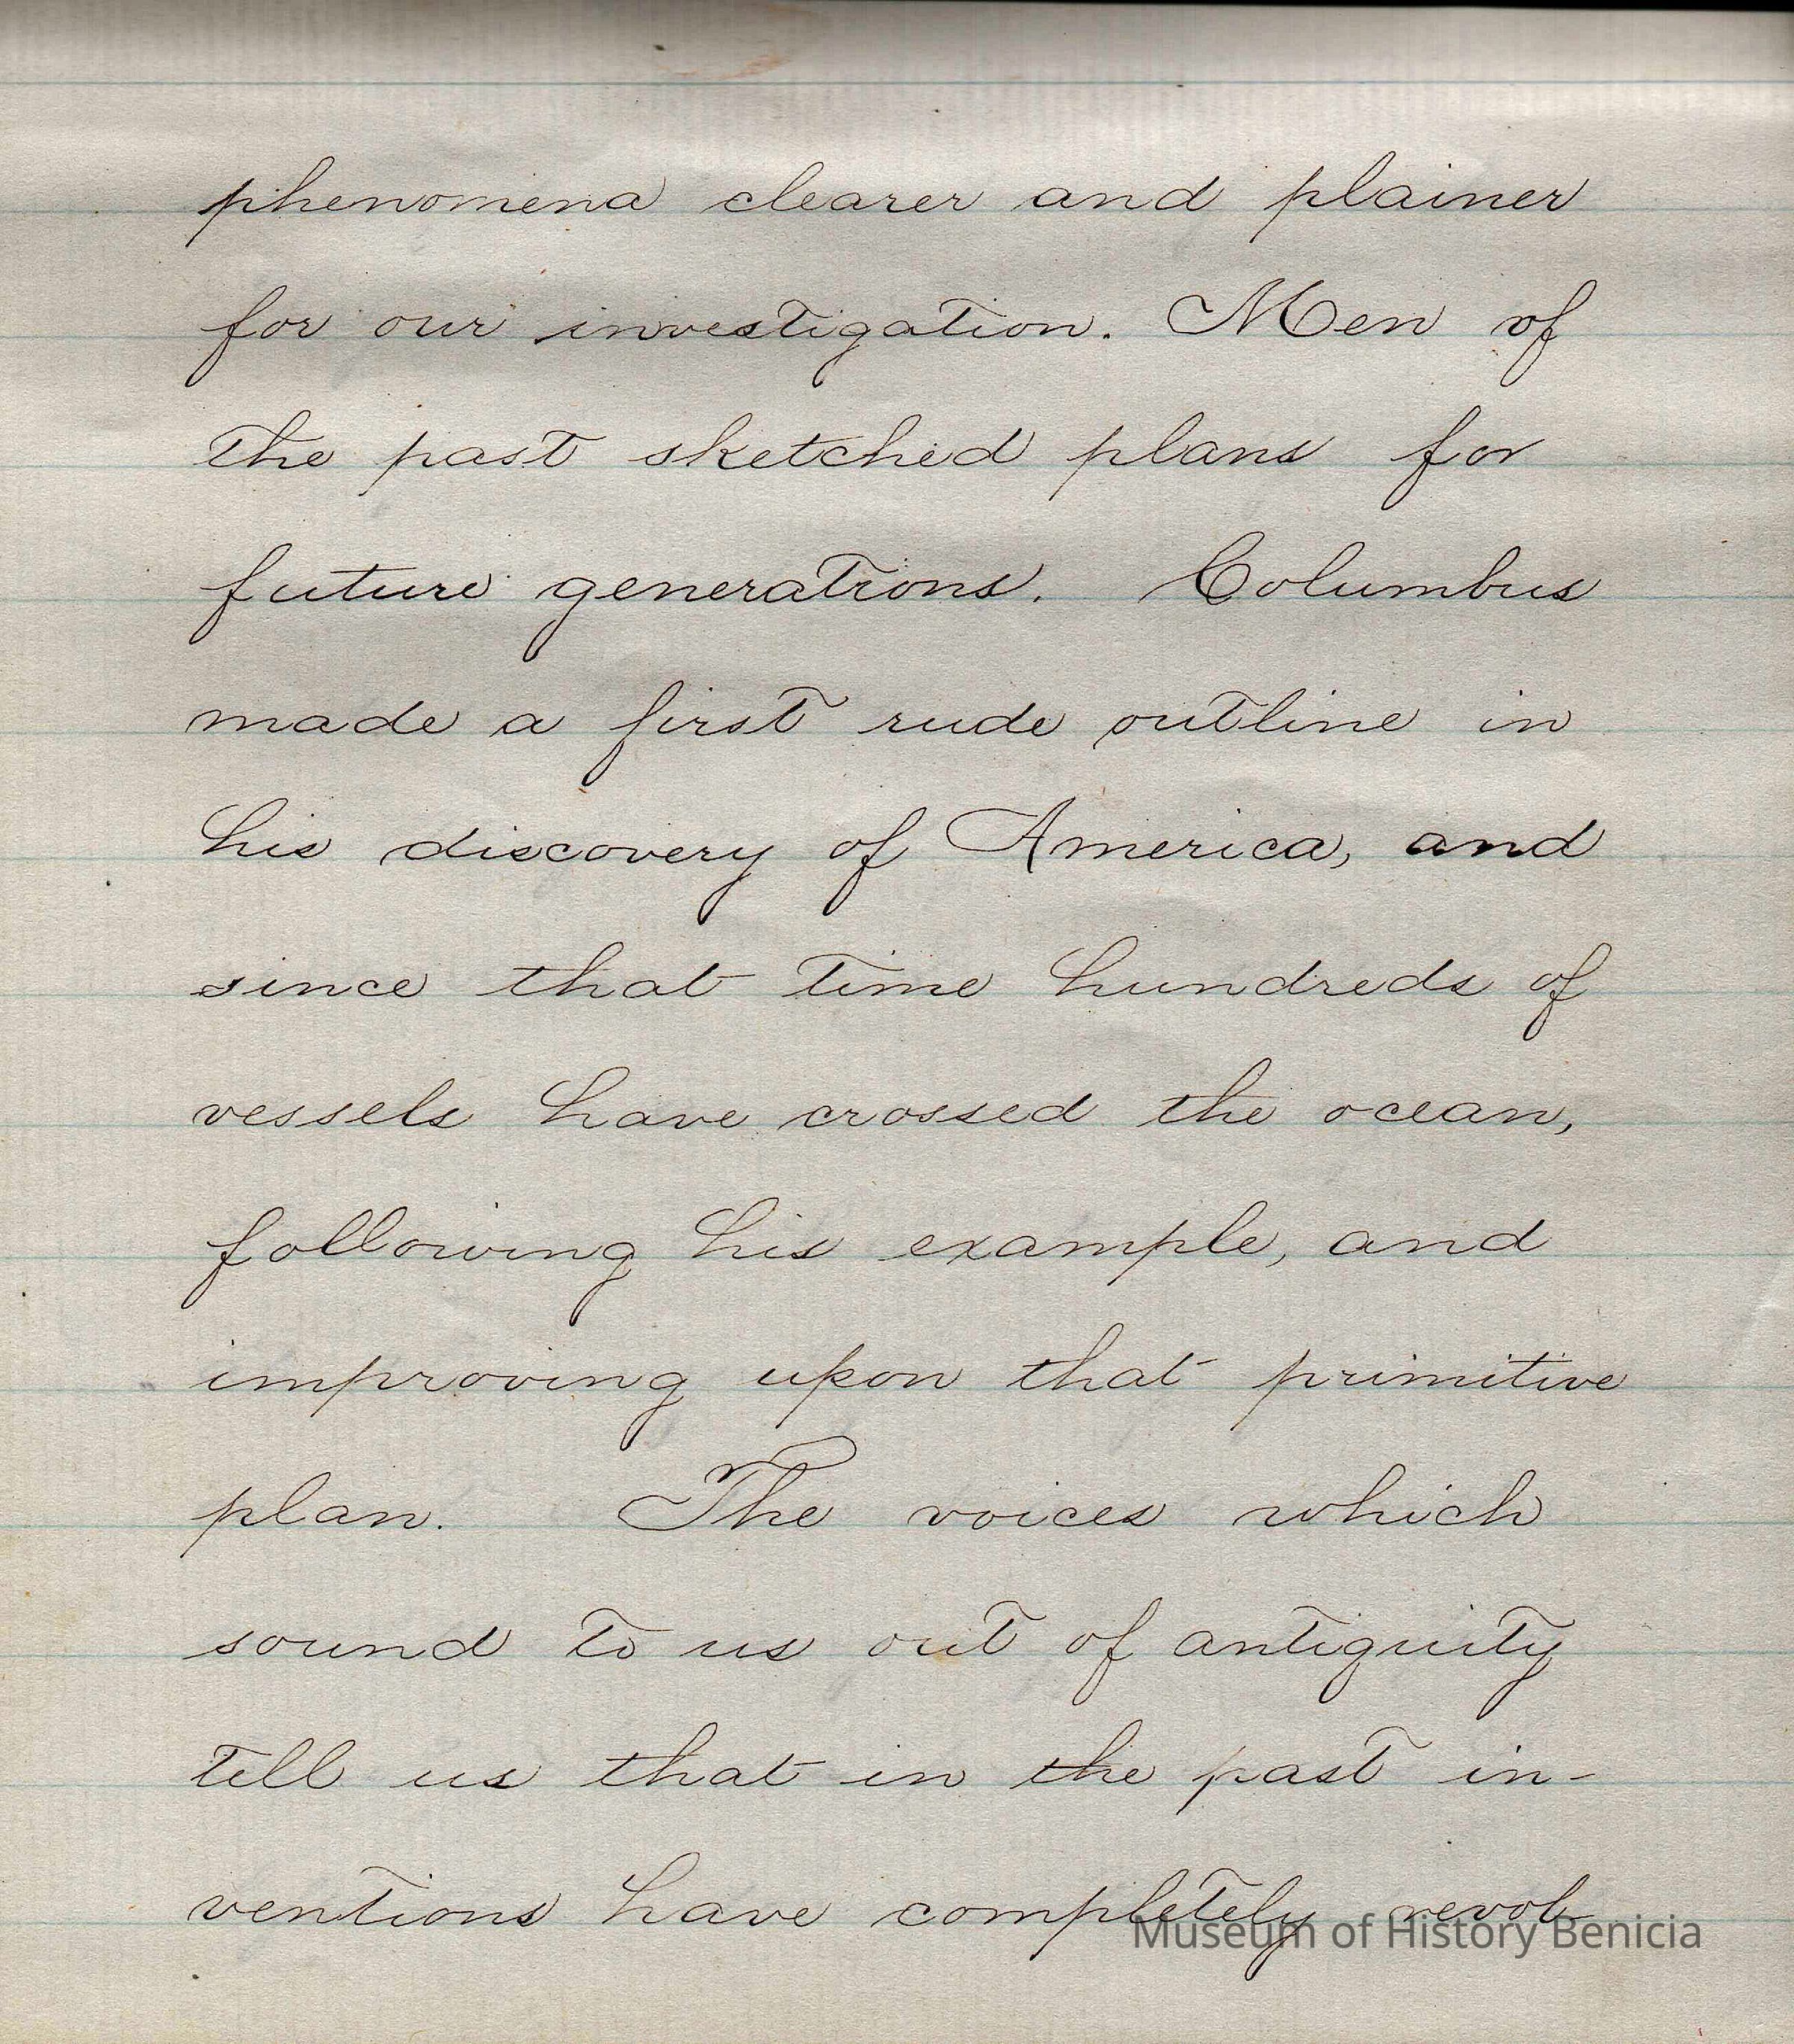 phenomena clearer and plainer
for our investigation. Men of
the past sketched plans for
future generations. Columbus
made a first rude outline in
his discovery of America, and
since that time hundreds of
vessels have crossed the ocean,
following his example, and
improving upon that primitive
plan. The voices which
sound to us out of antiquity
tell us that in the past in-
ventions have completely revol-
Museum of History Benicia